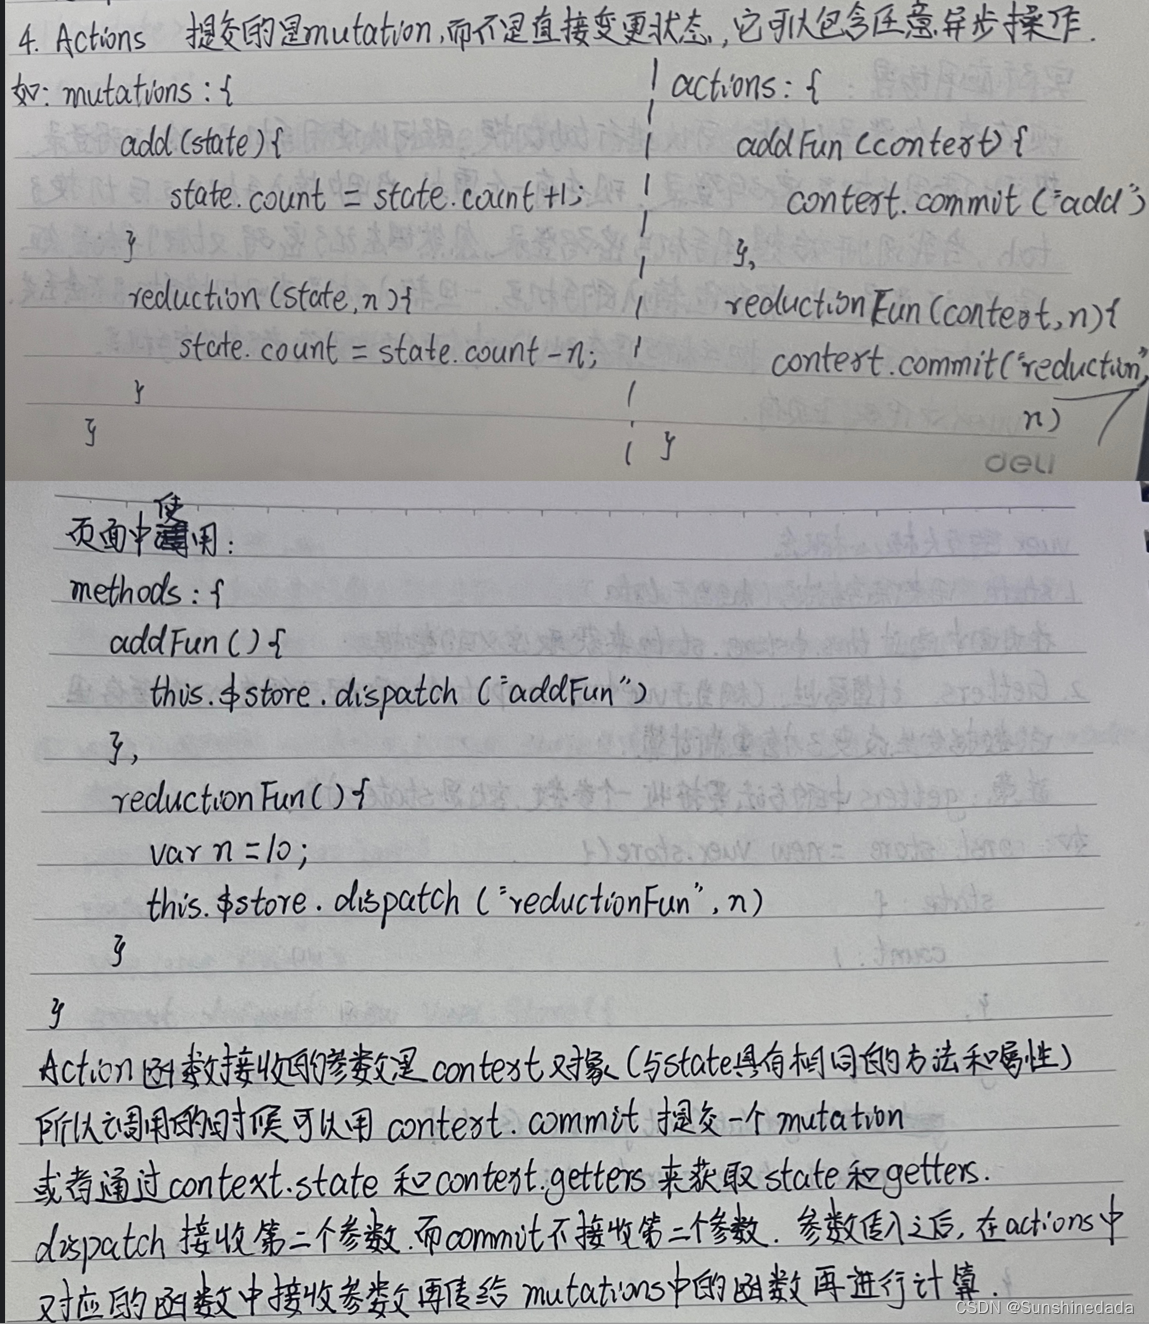 4. Actions 提交的是mutation,而不是直接变更状态,它可以包含任意异步操作.
如: mutations : {
add (state) {
state. count = state. count +1;
}
reduction (state, n) {
state. count = state. count -n;
}
}
actions : {
addFun (context) {
context. commit ("add")
},
reductionFun (context, n) {
context. commit ("reduction",
n)
}
deli
页面中使用:
methods : {
addFun () {
this. $store. dispatch ("addFun")
},
reductionFun () {
var n =10;
this. $store. dispatch ("reductionFun", n)
}
}
Action 函数接收的参数是 context 对象 (与state具有相同的方法和属性)
所以调用的时候可以用 context. commit 提交一个 mutation
或者通过context.state 和context.getters 来获取 state 和getters.
dispatch 接收第二个参数.而commit不接收第二个参数. 参数传入之后,在actions中
对应的函数中接收参数再传给 mutations中的函数再进行计算.
CSDN @Sunshinedada